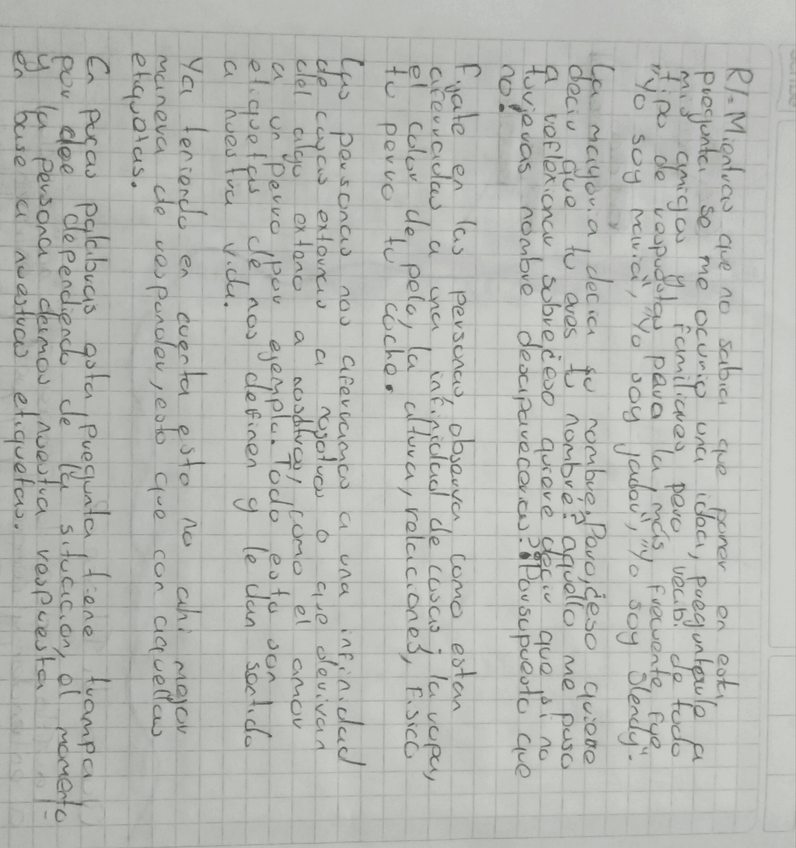 R/. Mientras que no sabia que poner en esta,
pregunta se me ocurrio una idea, preguntarle a
mis amigos y familiares pero recibi de todo
tipo de respuestas para la más frecuente fue
"Yo soy maria", "Yo soy yadav", "Yo soy Slendy".
La mayoria decia su nombre. Pero, ¿eso quiere
decir que tu eres tu nombre? aquello me puso
a reflexionar sobre ¿eso quiere decir que si no
tuvieras nombre desaparecerias? ¡Porsupuesto que
no!
Fijate en las personas, observa como estan
aferradas a una infinidad de cosas: la ropa,
el color de pelo, la altura, relaciones, fisico
tu perro tu coche.
Las personas nos aferramos a una infinidad
de cosas externas a nosotros o que derivan
del algo externo a nosotros, como el amor
a un perro, por ejemplo. Todo esto son
etiquetas de nos definen y le dan sentido
a nuestra vida.
Ya teniendo en cuenta esto no ahi mejor
manera de responder, esto que con aquellas
etiquetas.
En pocas palabras esta pregunta, tiene trampa
por dee dependiendo de la situación, el momento
y la persona daremos nuestra respuesta
en base a nuestras etiquetas.